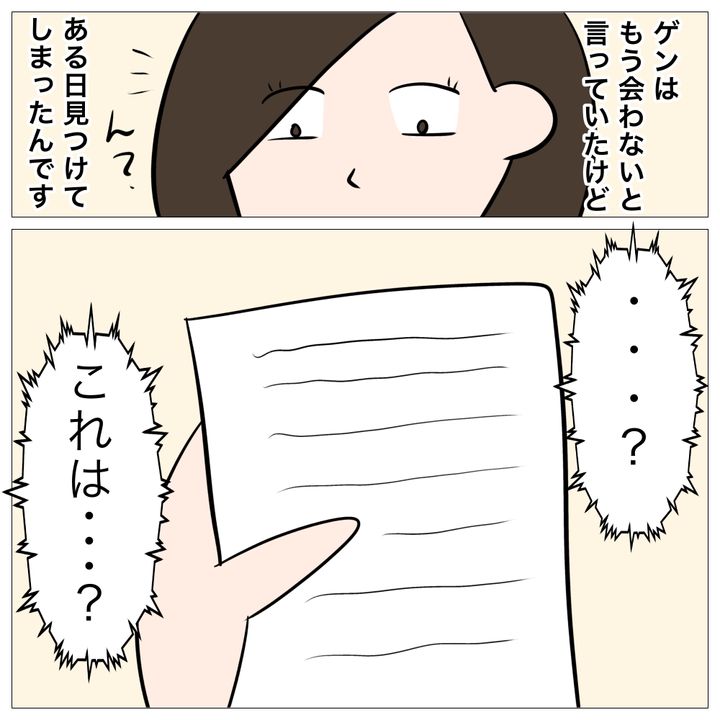 ゲンは
もう会わないと
言っていたけど
ある日見つけて
しまったんです
ん？
・・・？
これは・・・？